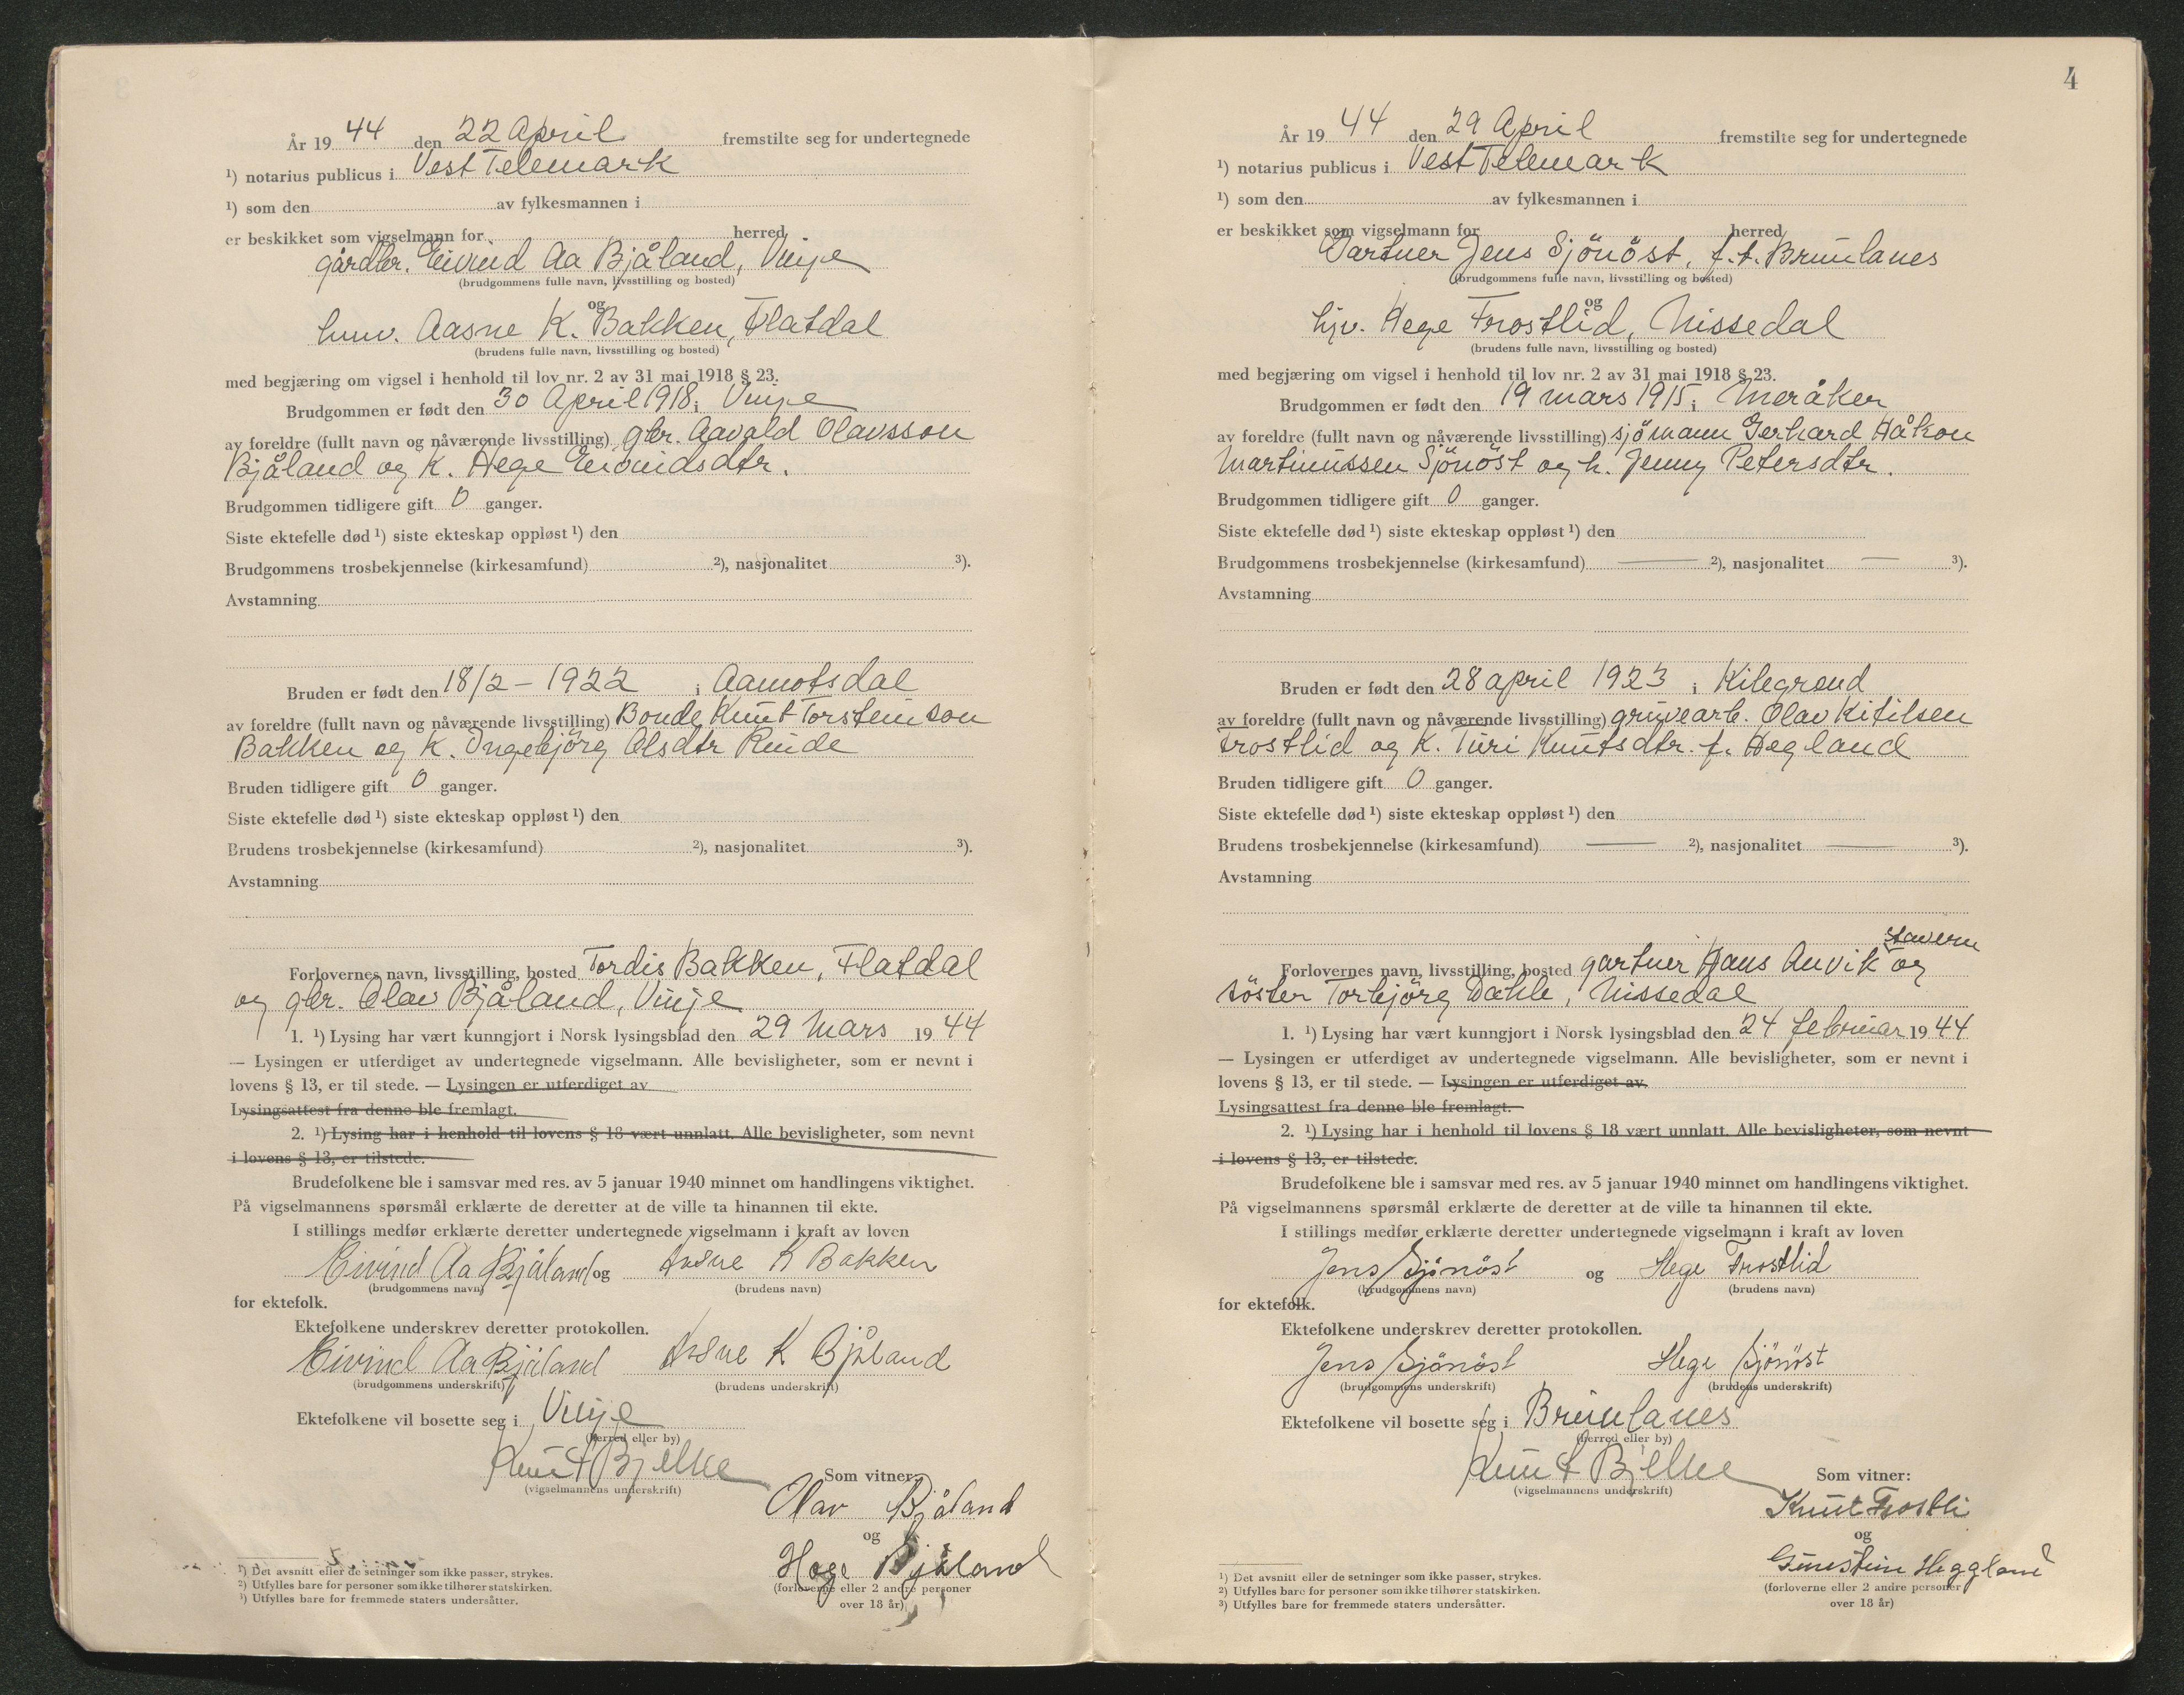 År 19 44 den 22 April fremstilte seg for undertegnede
¹) notarius publicus i Vest Telemark
¹) som den av fylkesmannen i
er beskikket som vigselmann for herred
gårdbr. Eivind Aa Bjåland, Vinje
(brudgommens fulle navn, livsstilling og bosted)
og
huuv. Aasne K. Bakken, Flatdal
(brudens fulle navn, livsstilling og bosted)
med begjæring om vigsel i henhold til lov nr. 2 av 31 mai 1918 § 23.
Brudgommen er født den 30 April 1918 i Vinje
av foreldre (fullt navn og nåværende livsstilling) gbr. Aavald Olavsson
Bjåland og K. Hege Eivindsdtr.
Brudgommen tidligere gift 0 ganger.
Siste ektefelle død ¹) siste ekteskap oppløst ¹) den
Brudgommens trosbekjennelse (kirkesamfund) ²), nasjonalitet ³).
Avstamning
Bruden er født den 18/2 - 1922 i Aamotsdal
av foreldre (fullt navn og nåværende livsstilling) Bonde Knut Torsteinson
Bakken og K. Ingebjörg Olsdtr Rinde
Bruden tidligere gift 0 ganger.
Siste ektefelle død ¹) siste ekteskap oppløst ¹) den
Brudens trosbekjennelse (kirkesamfund) ²), nasjonalitet ³).
Avstamning
Forlovernes navn, livsstilling, bosted Tordis Bakken, Flatdal
og gbr. Olav Bjåland, Vinje
1. ¹) Lysing har vært kunngjort i Norsk lysingsblad den 29 Mars 19 44
— Lysingen er utferdiget av undertegnede vigselmann. Alle bevisligheter, som er nevnt i
lovens § 13, er til stede. — Lysingen er utferdiget av
Lysingsattest fra denne ble fremlagt.
2. ¹) Lysing har i henhold til lovens § 18 vært unnlatt. Alle bevisligheter, som nevnt
i lovens § 13, er tilstede.
Brudefolkene ble i samsvar med res. av 5 januar 1940 minnet om handlingens viktighet.
På vigselmannens spørsmål erklærte de deretter at de ville ta hinannen til ekte.
I stillings medfør erklærte deretter undertegnede vigselmann i kraft av loven
Eivind Aa Bjåland og Aasne K Bakken
(brudgommens navn) (brudens navn)
for ektefolk.
Ektefolkene underskrev deretter protokollen.
Eivind Aa Bjåland Aasne K Bjåland
(brudgommens underskrift) (brudens underskrift)
Ektefolkene vil bosette seg i Vinje
(herred eller by)
Knut Bjelke
(vigselmannens underskrift)
Som vitner:
Olav Bjåland
og
Hege Bjåland
(forloverne eller 2 andre personer
over 18 år)
¹) Det avsnitt eller de setninger som ikke passer, strykes.
²) Utfylles bare for personer som ikke tilhører statskirken.
³) Utfylles bare for fremmede staters undersåtter.
4
År 19 44 den 29 April fremstilte seg for undertegnede
¹) notarius publicus i Vest Telemark
¹) som den av fylkesmannen i
er beskikket som vigselmann for herred
Gartner Jens Sjönöst, f.t. Brunlanes
(brudgommens fulle navn, livsstilling og bosted)
og
hjv. Hege Frostlid, Nissedal
(brudens fulle navn, livsstilling og bosted)
med begjæring om vigsel i henhold til lov nr. 2 av 31 mai 1918 § 23.
Brudgommen er født den 19 mars 1915 i Meråker
av foreldre (fullt navn og nåværende livsstilling) sjömann Gerhard Håkon
Martinussen Sjönöst og h. Jenny Petersdtr.
Brudgommen tidligere gift 0 ganger.
Siste ektefelle død ¹) siste ekteskap oppløst ¹) den
Brudgommens trosbekjennelse (kirkesamfund) — ²), nasjonalitet — ³).
Avstamning
Bruden er født den 28 april 1923 i Kilegrend
av foreldre (fullt navn og nåværende livsstilling) gruvearb. Olav Kitilsen
Frostlid og K. Turi Knutsdtr. f. Hegland
Bruden tidligere gift 0 ganger.
Siste ektefelle død ¹) siste ekteskap oppløst ¹) den
Brudens trosbekjennelse (kirkesamfund) — ²), nasjonalitet — ³).
Avstamning
Stavern
Forlovernes navn, livsstilling, bosted gartner Hans Anvik og
söster Torbjörg Dahle, Nissedal
1. ¹) Lysing har vært kunngjort i Norsk lysingsblad den 24 februar 19 44
— Lysingen er utferdiget av undertegnede vigselmann. Alle bevisligheter, som er nevnt i
lovens § 13, er til stede. — Lysingen er utferdiget av
Lysingsattest fra denne ble fremlagt.
2. ¹) Lysing har i henhold til lovens § 18 vært unnlatt. Alle bevisligheter, som nevnt
i lovens § 13, er tilstede.
Brudefolkene ble i samsvar med res. av 5 januar 1940 minnet om handlingens viktighet.
På vigselmannens spørsmål erklærte de deretter at de ville ta hinannen til ekte.
I stillings medfør erklærte deretter undertegnede vigselmann i kraft av loven
Jens Sjönöst og Hege Frostlid
(brudgommens navn) (brudens navn)
for ektefolk.
Ektefolkene underskrev deretter protokollen.
Jens Sjönöst Hege Sjönöst
(brudgommens underskrift) (brudens underskrift)
Ektefolkene vil bosette seg i Brunlanes
(herred eller by)
Knut Bjelke
(vigselmannens underskrift)
Som vitner:
Knut Frostli
og
Gunstein Heggland
(forloverne eller 2 andre personer
over 18 år)
¹) Det avsnitt eller de setninger som ikke passer, strykes.
²) Utfylles bare for personer som ikke tilhører statskirken.
³) Utfylles bare for fremmede staters undersåtter.